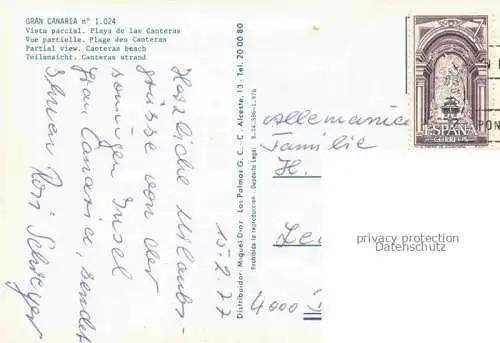 GRAN CANARIA n° 1.024
Vista parcial. Playa de las Canteras
Vue partielle. Plage des Canteras
Partial view. Canteras beach
Teilansicht. Canteras strand
Herzliche Urlaubs-
grüsse von der
sonnigen Insel
Gran Canaria, sendet
Rosi
15.2.77
Distribuidor: Miguel Diaz - Las Palmas G. C. - C. Alceste, 13 - Tel. 20 00 80
Prohibida la reproducción - Depósito Legal
Allemania
Familie
H.
4000
ESPAÑA
CORREOS
PON
privacy protection
Datenschutz